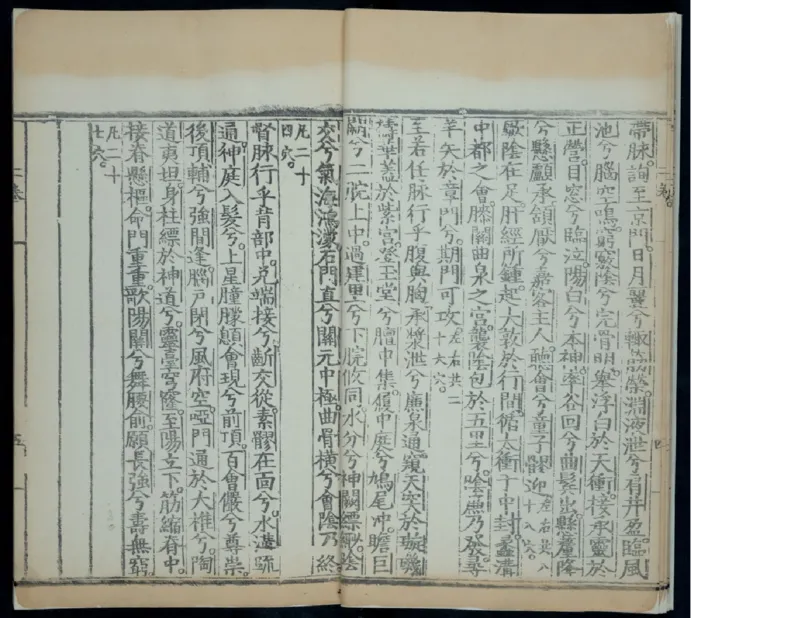 帶脉。詢至京門。日月翼兮輒筋榮。淵液泄兮肩井盈。臨風
池兮腦空鳴。窮竅陰兮完骨明。舉浮白於天衝。接承靈於
正營。目窓兮臨泣。陽白兮本神。率谷回兮曲髩出。懸釐降
兮懸顱承。頷厭兮嘉客主人。聽會兮童子髎迎左右共八十八穴。
厥陰在足。肝經所鍾。起大敦於行間。循太衝于中封。蠡溝
中都之會。膝關曲泉之宮。襲陰包於五里兮。陰廉乃發。尋
羊矢於章門兮。期門可攻左右共二十六穴。
至若任脉行乎腹與胸。承漿泄兮廉泉通。窺天突於璇璣
擣華蓋於紫宮。登玉堂兮膻中集。履中庭兮鳩尾冲。瞻巨
闕兮二脘上中。過建里兮下脘攸同。水分兮神闕縹緲。陰
交兮氣海鴻濛。石門直兮關元中極。曲骨橫兮會陰乃終
凡二十四穴。
督脉行乎背部中。兌端接兮齗交從。素髎在面兮。水溝疏
通。神庭入髮兮。上星瞳朦。顖會現兮前頂。百會儼兮尊崇。
後頂輔兮強間逢。腦戶閉兮風府空。啞門通於大椎兮。陶
道夷坦。身柱縹於神道兮。靈臺穹窿。至陽立下。筋縮脊中。
接脊懸樞。命門重重。歌陽關兮舞腰俞。願長強兮壽無窮
凡二十七穴。